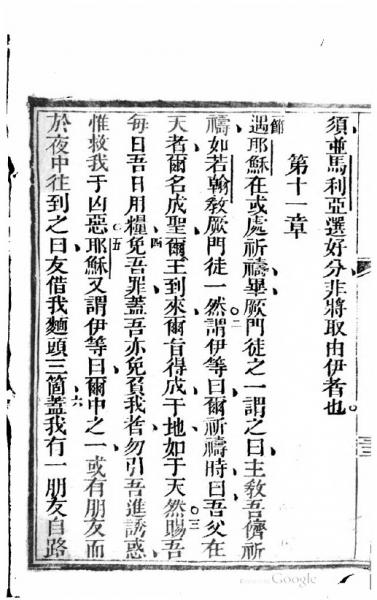 須並馬利亞選好分非將取由伊者也。
第十一章
節遇耶穌在或處祈禱畢厥門徒之一謂之曰主教吾儕祈
禱如若翰教厥門徒一然謂伊等曰爾祈禱時曰吾父在
天者爾名成聖爾王到來爾旨得成于地如于天然賜吾
每日吾日用糧免吾罪蓋吾亦免負我者勿引吾進誘惑
惟救我于凶惡耶穌又謂伊等曰爾中之一或有朋友而
於夜中往到之曰友借我麵頭三箇蓋我有一朋友自路
二
三
四
五
六
Google